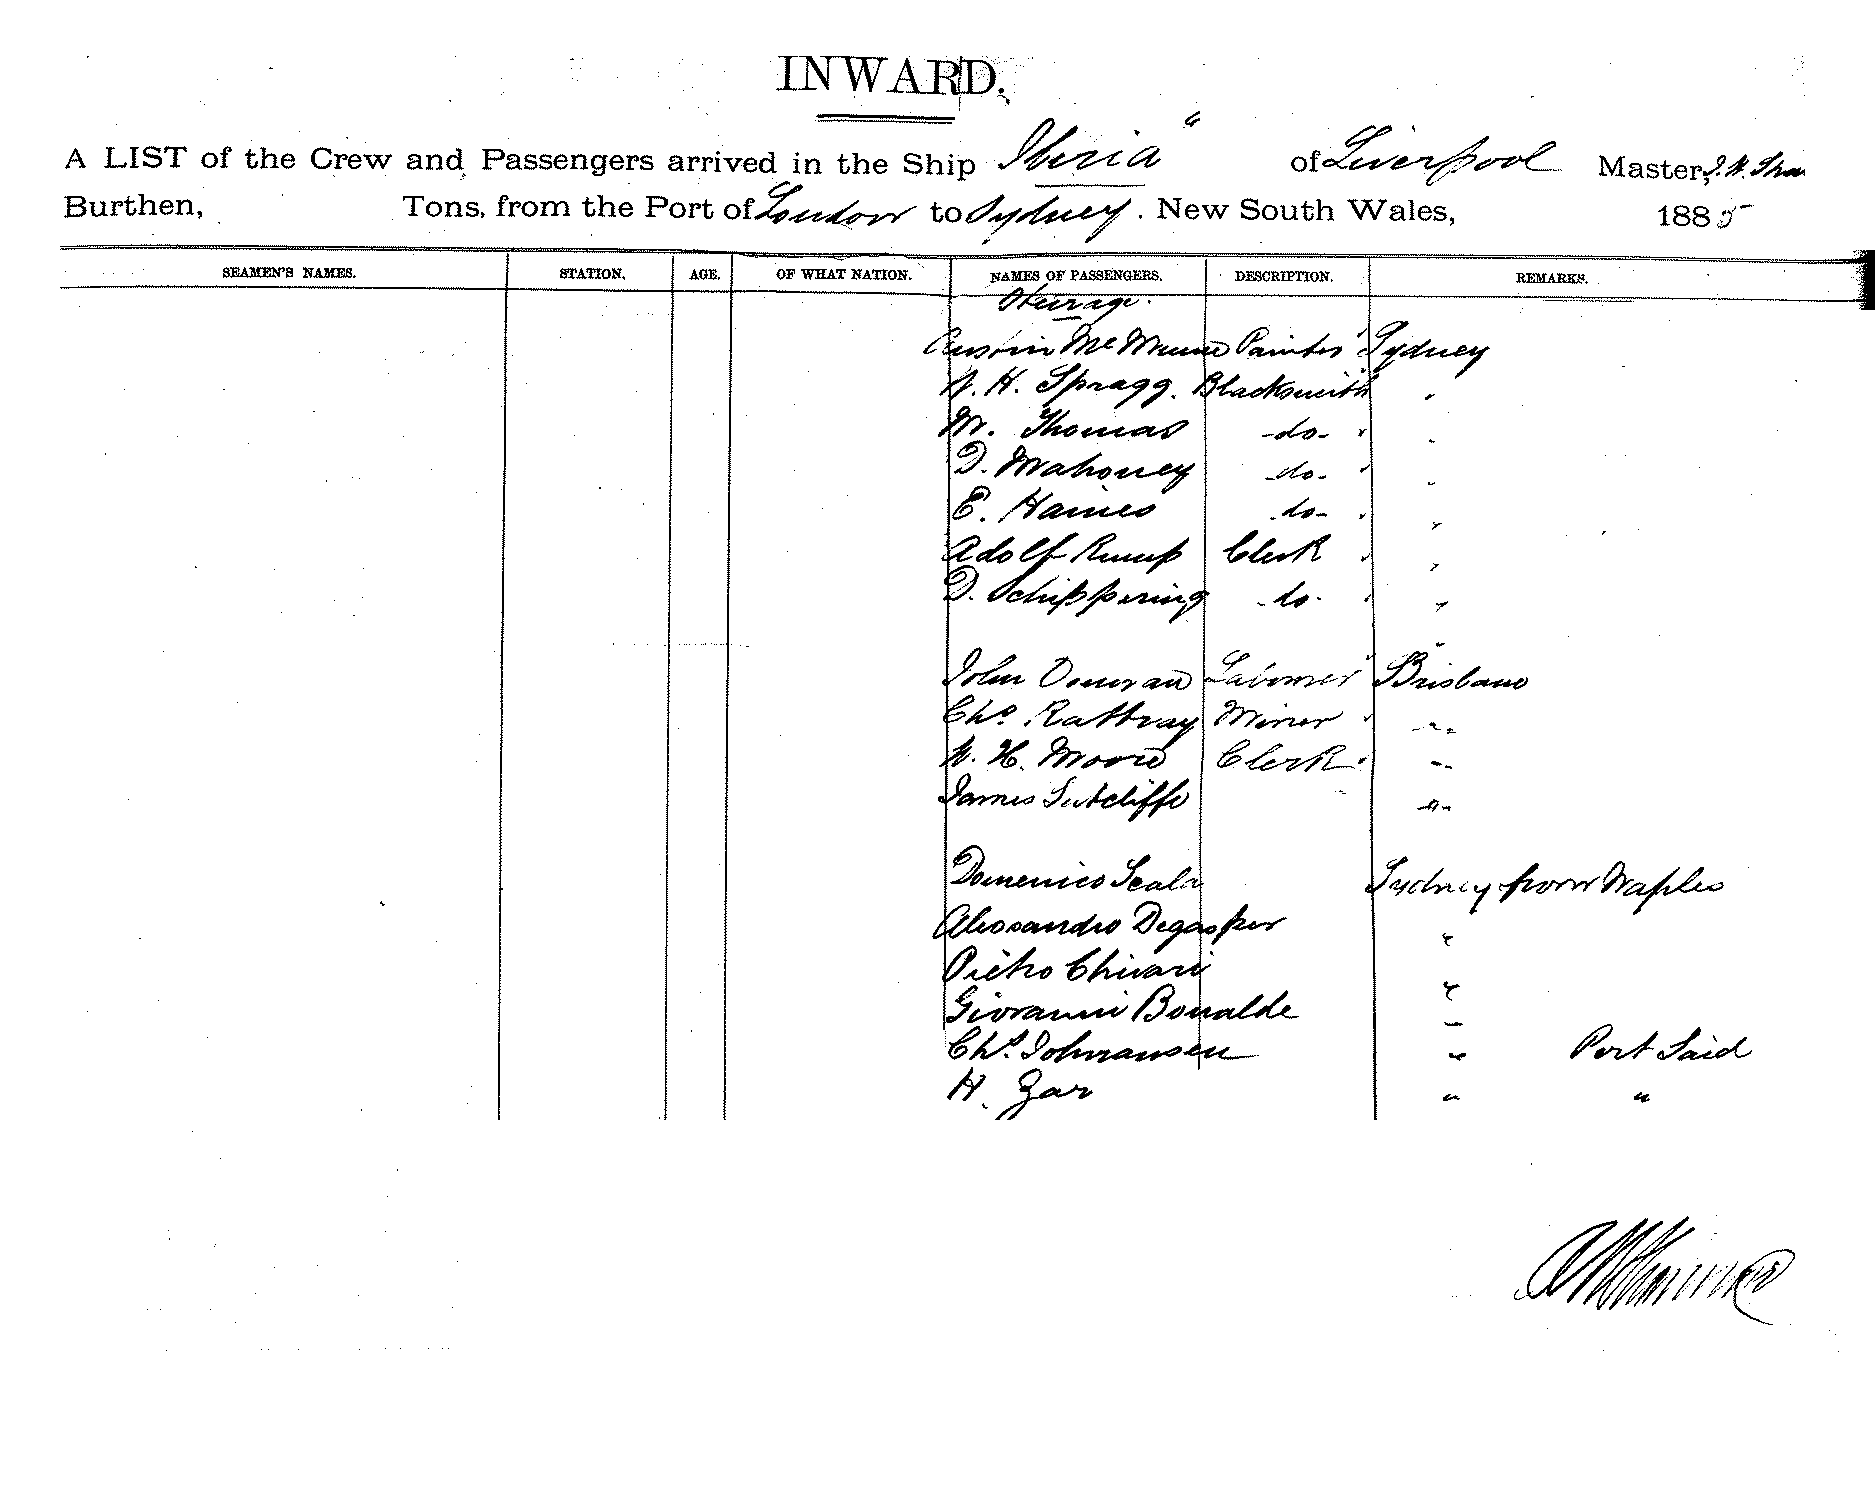 INWARD.
A LIST of the Crew and Passengers arrived in the Ship Iberia" of Liverpool Master,
Burthen, Tons, from the Port of London to Sydney. New South Wales, 1885
SEAMEN'S NAMES. STATION. AGE. OF WHAT NATION. NAMES OF PASSENGERS. DESCRIPTION. REMARKS.
Steerage.
Painter Sydney
H. Spragg. Blacksmith "
M. Thomas -do- "
D. Mahoney -do- "
E. Haines -do- "
Adolf Rump Clerk "
D. Schippering -do- "
John Donovan Labourer Brisbane
Chs. Rattray Miner "
H. Moore Clerk "
James Sutcliffe "
Domenico Scala Sydney from Naples
Alessandro Degasper "
Pietro Chivari "
Giovanni Bonalde "
Chs. Johnansen " Port Said
H. Zar " "